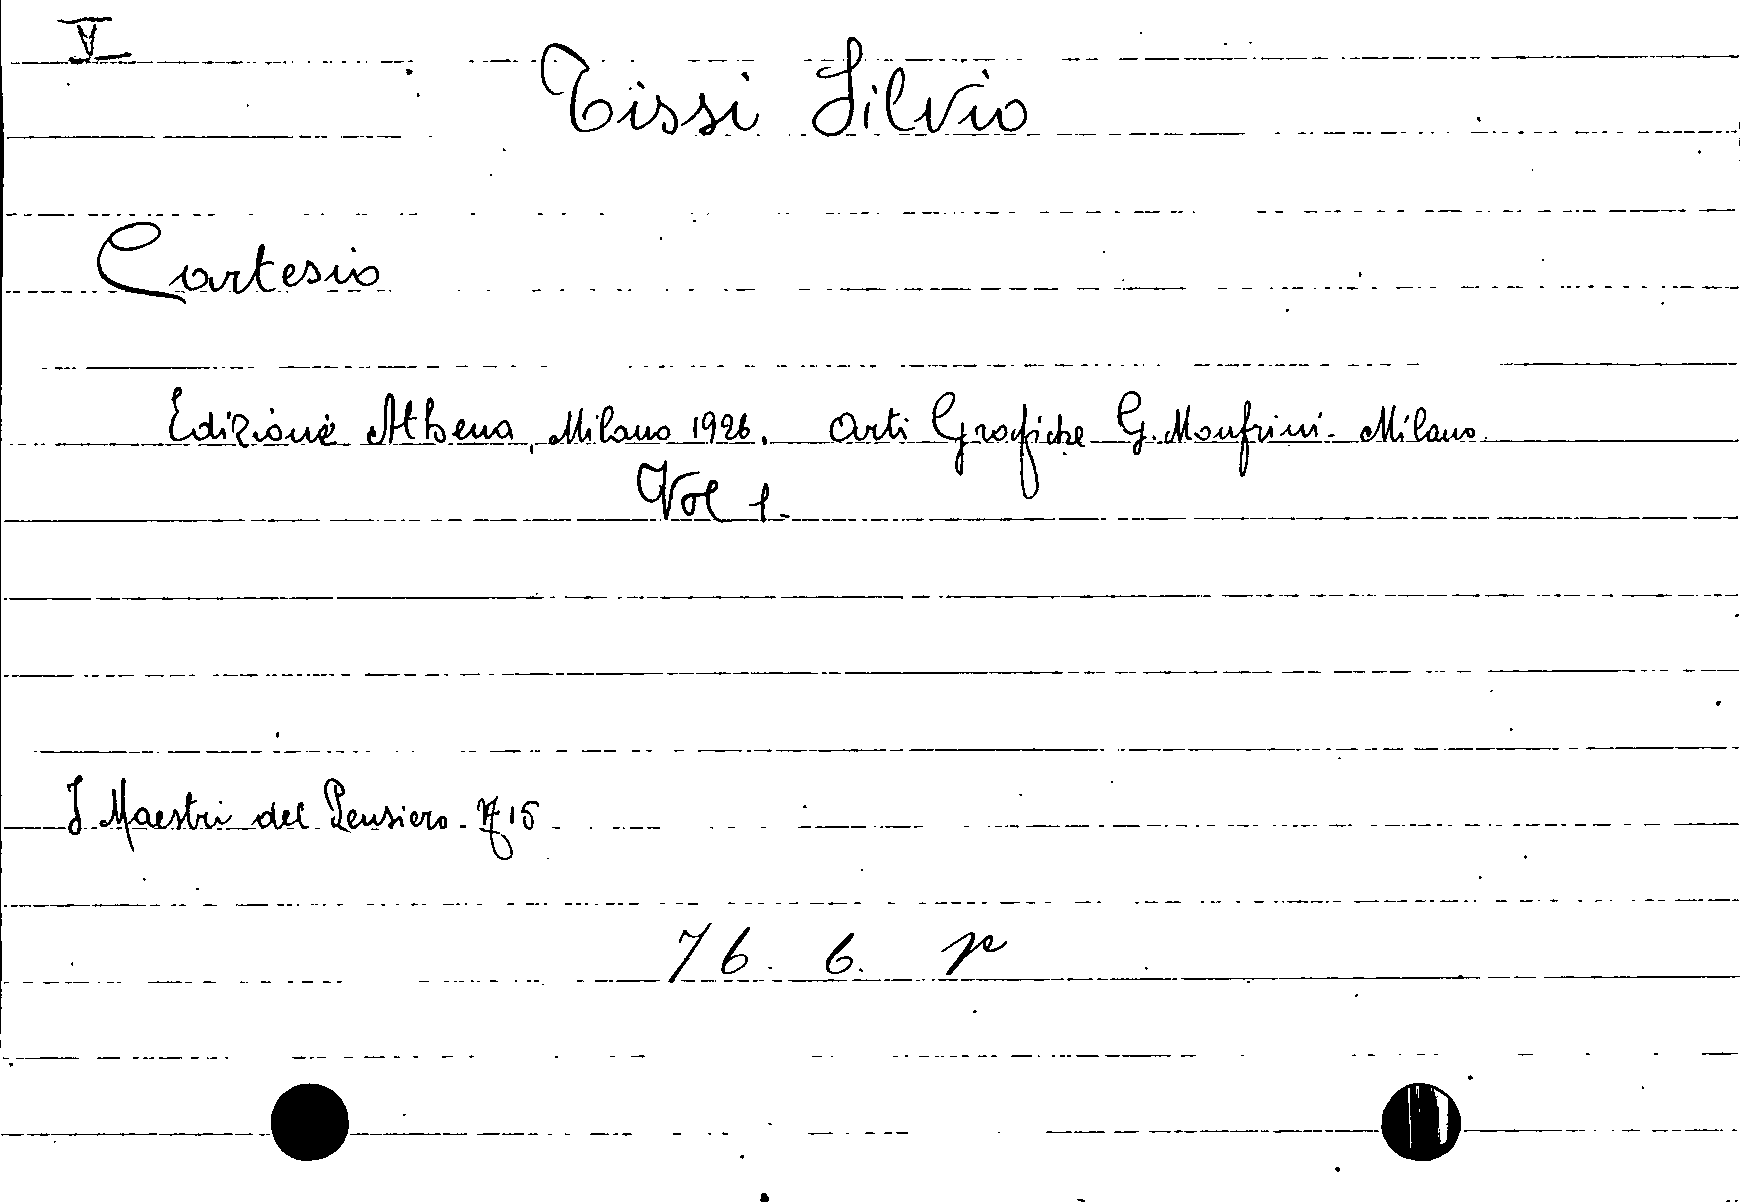 V
Tissi Silvio
Cartesio
Edizione Athena, Milano 1926. Arti Grafiche G. Monfrini - Milano.
Vol 1.
I Maestri del Pensiero - N 15
76. 6. p